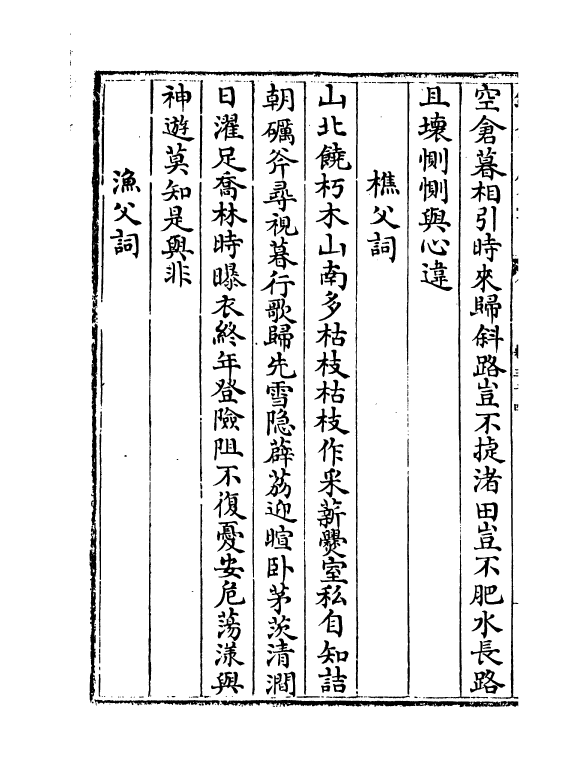 空倉暮相引時來歸斜路豈不捷渚田豈不肥水長路
且壞惻惻與心違
樵父詞
山北饒朽木山南多枯枝枯枝作采薪爨室私自知詰
朝礪斧尋視暮行歌歸先雪隐薜荔迎暄卧茅茨清澗
日濯足喬林時曝衣終年登險阻不復憂安危蕩漾與
神遊莫知是與非
漁父詞